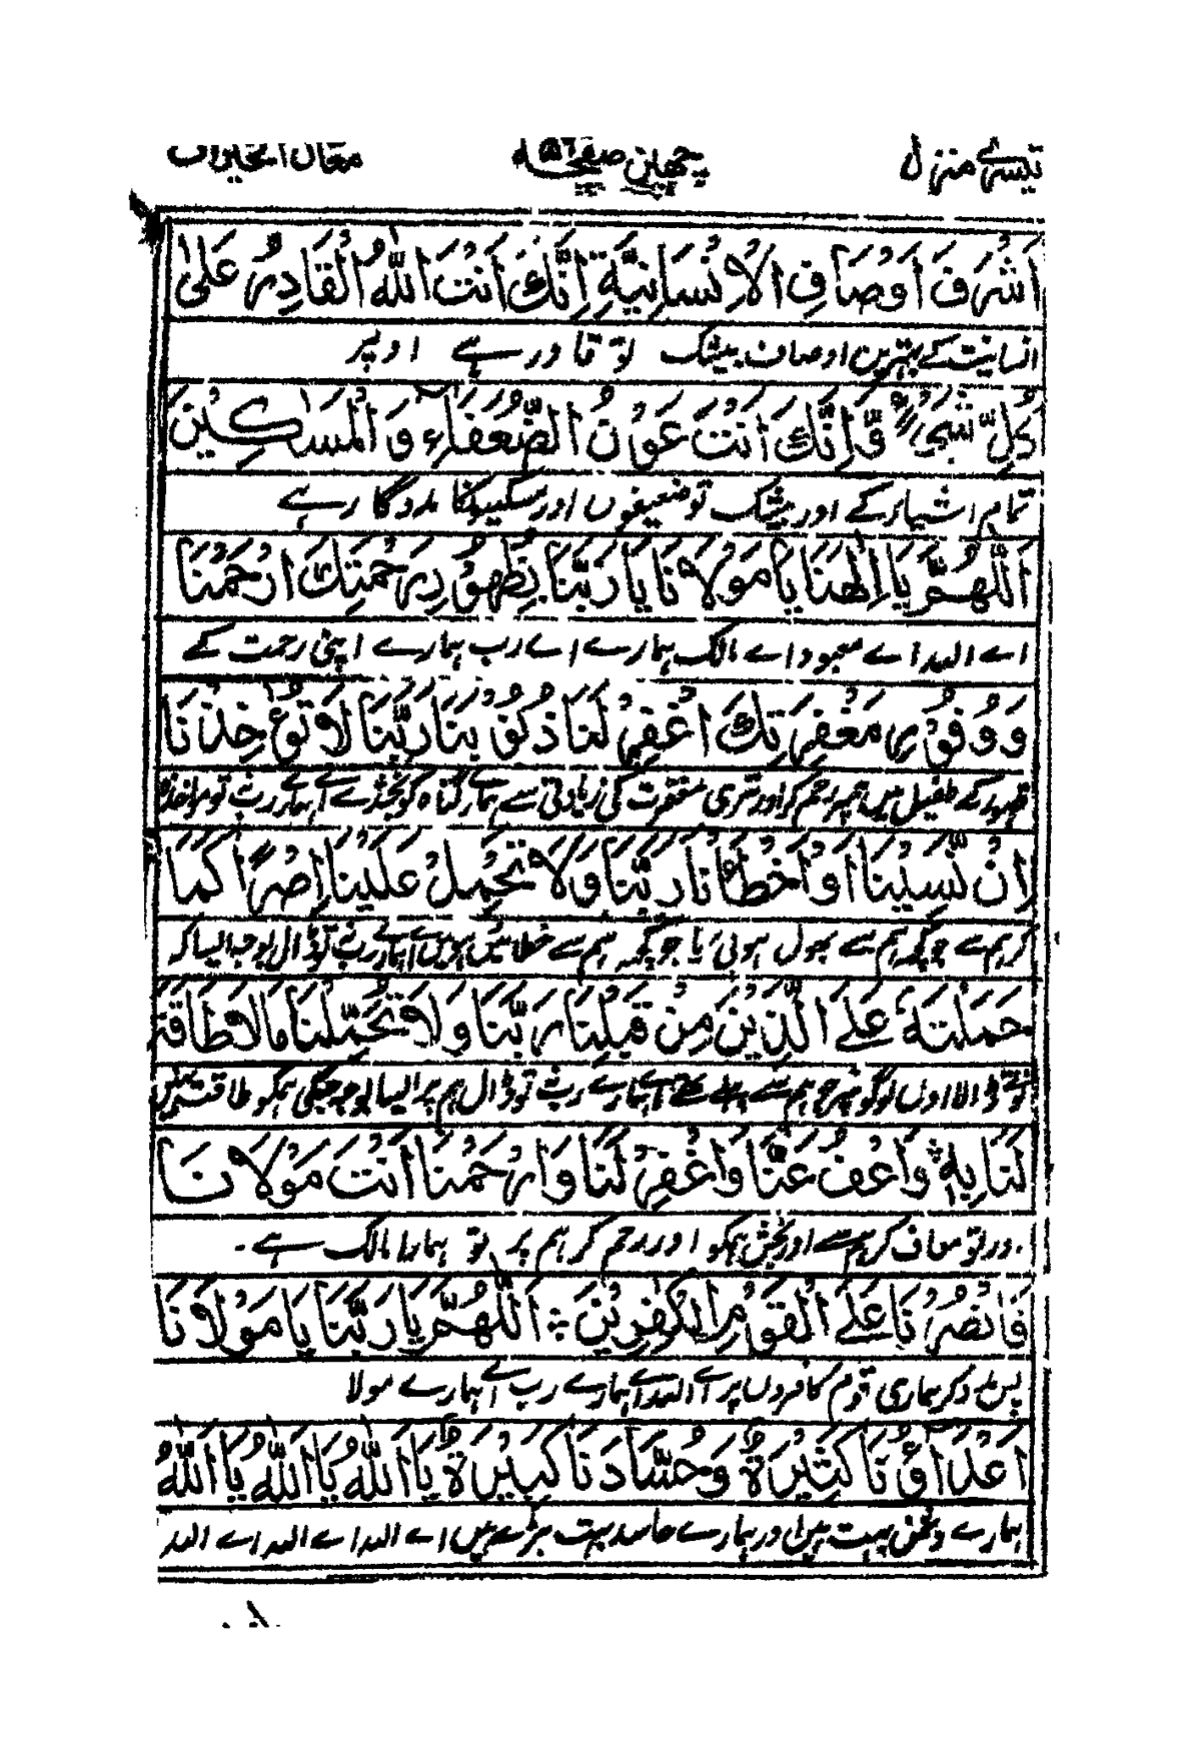 تیسرے منزل چھپن صفحہ ۵۶ معان الخیرات
اَشْرَفَ اَوْصَافِ الْاِنْسَانِيَّةِ اِنَّكَ اَنْتَ اللّٰهُ الْقَادِرُ عَلٰى
انسانیت کے بہترین اوصاف بیشک تو قادر ہے اوپر
كُلِّ شَیْءٍ وَّاِنَّكَ اَنْتَ عَوْنُ الضُّعَفَاءِ وَالْمَسَاكِيْنَ
تمام اشیاء کے اور بیشک تو ضعیفوں اور مسکینونکا مددگار ہے
اَللّٰهُمَّ يَا اِلٰهَنَا يَا مَوْلَانَا يَا رَبَّنَا بِظُهُوْرِ رَحْمَتِكَ ارْحَمْنَا
اے اللہ اے معبود اے مالک ہمارے اے رب ہمارے اپنی رحمت کے
وَوُفُوْرِ مَغْفِرَتِكَ اغْفِرْ لَنَا ذُنُوْبَنَا رَبَّنَا لَا تُؤَاخِذْنَا
ظہور کے طفیل میں ہمپر رحم کر اور تیری مغفرت کی زیادتی سے ہمارے گناہ کو بخشدے اے ہمارے رب تو مواخذہ
اِنْ نَّسِيْنَا اَوْ اَخْطَاْنَا رَبَّنَا وَلَا تَحْمِلْ عَلَيْنَا اِصْرًا كَمَا
کر ہم سے جو کچھ ہم سے بھول ہوئی یا جو کچھ ہم سے خطائیں ہوئیں اے ہمارے رب نہ تو ڈال بوجھ ایسا کہ
حَمَلْتَهٗ عَلَى الَّذِيْنَ مِنْ قَبْلِنَا رَبَّنَا وَلَا تُحَمِّلْنَا مَا لَا طَاقَةَ
تونے ڈالا اون لوگوں پر جو ہم سے پہلے تھے اے ہمارے رب نہ تو ڈال ہم پر ایسا بوجھ جسکی ہمکو طاقت نہیں
لَنَا بِهٖ وَاعْفُ عَنَّا وَاغْفِرْ لَنَا وَارْحَمْنَا اَنْتَ مَوْلَانَا
اور تو معاف کر ہم سے اور بخش ہمکو اور رحم کر ہم پر تو ہمارا مالک ہے۔
فَانْصُرْنَا عَلَى الْقَوْمِ الْكٰفِرِيْنَ اَللّٰهُمَّ يَا رَبَّنَا يَا مَوْلَانَا
پس مدد کر ہماری قوم کافروں پر اے اللہ اے ہمارے رب اے ہمارے مولا
اَعْدَاؤُنَا كَثِيْرَةٌ وَحُسَّادُنَا كَبِيْرَةٌ يَا اَللّٰهُ يَا اَللّٰهُ يَا اَللّٰهُ
ہمارے دشمن بہت ہیں اور ہمارے حاسد بہت بڑے ہیں اے اللہ اے اللہ اے اللہ